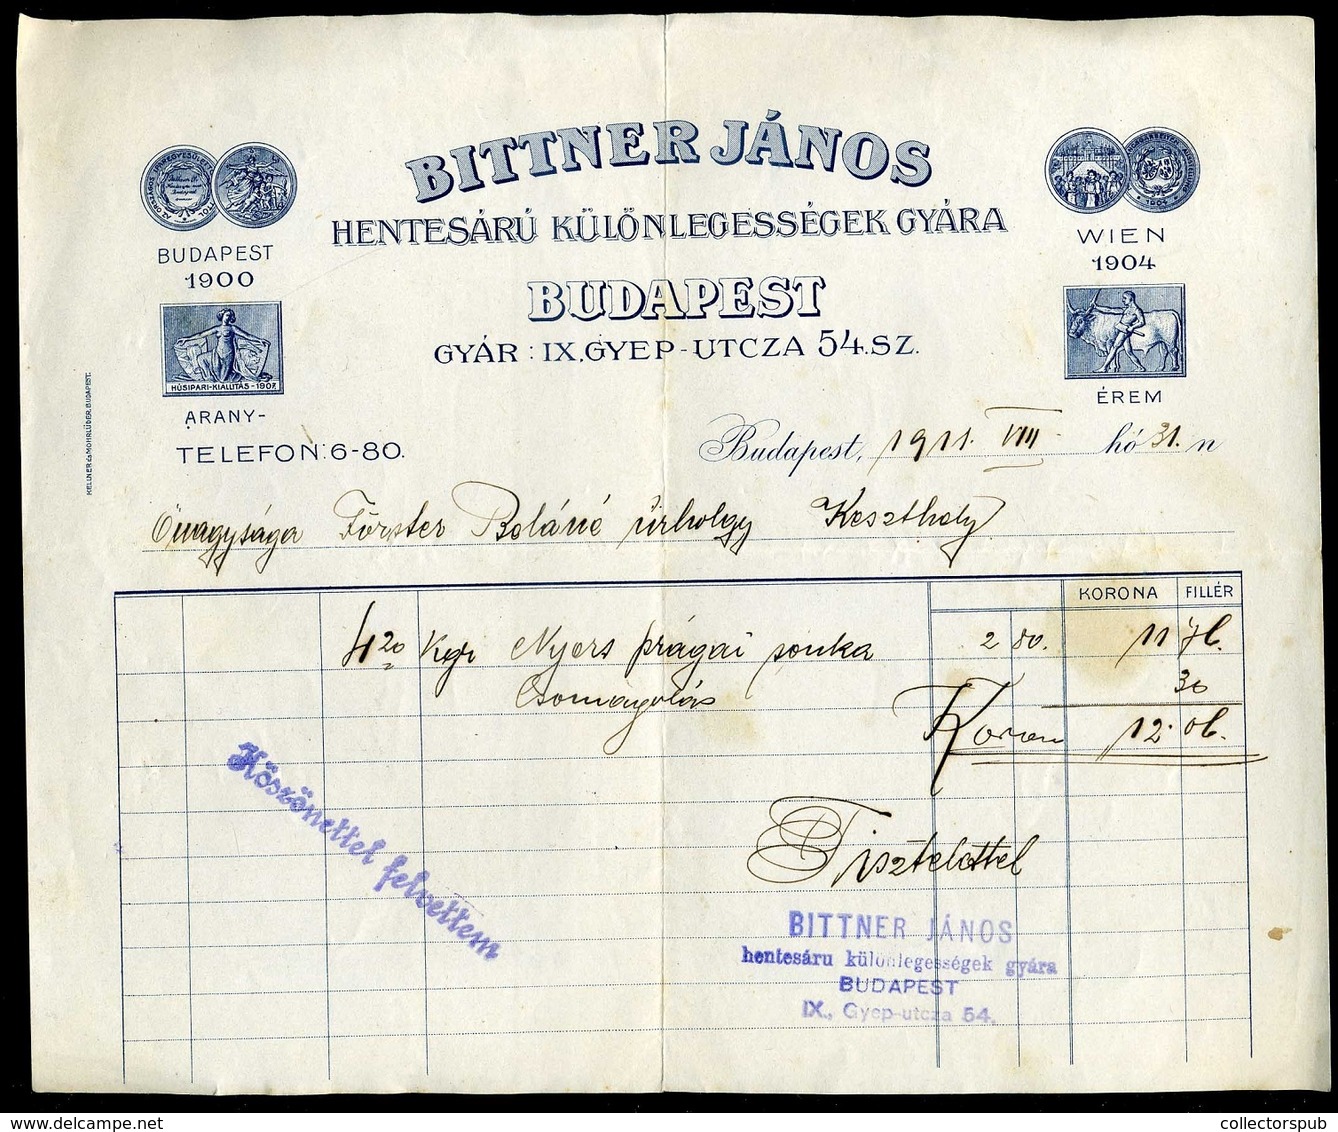 BITTNER JÁNOS
HENTESÁRÚ KÜLÖNLEGESSÉGEK GYÁRA
BUDAPEST
GYÁR : IX. GYEP-UTCZA 54. SZ.
BUDAPEST
1900
HÚSIPARI-KIÁLLITÁS-1907.
ARANY-
TELEFON: 6-80.
WIEN
1904
ÉREM
KELLNER és MOHRLÜDER, BUDAPEST.
Budapest, 1911. VIII hó 31. n
Önagysága Förster Beláné úrhölgy Keszthely
KORONA FILLÉR
4 20 Kgr Nyers prágai sonka 2 80. 11 76.
Csomagolás 30
Korona 12.06.
Köszönettel felvettem
Tisztelettel
BITTNER JÁNOS
hentesáru különlegességek gyára
BUDAPEST
IX., Gyep-utcza 54.
collectorspub